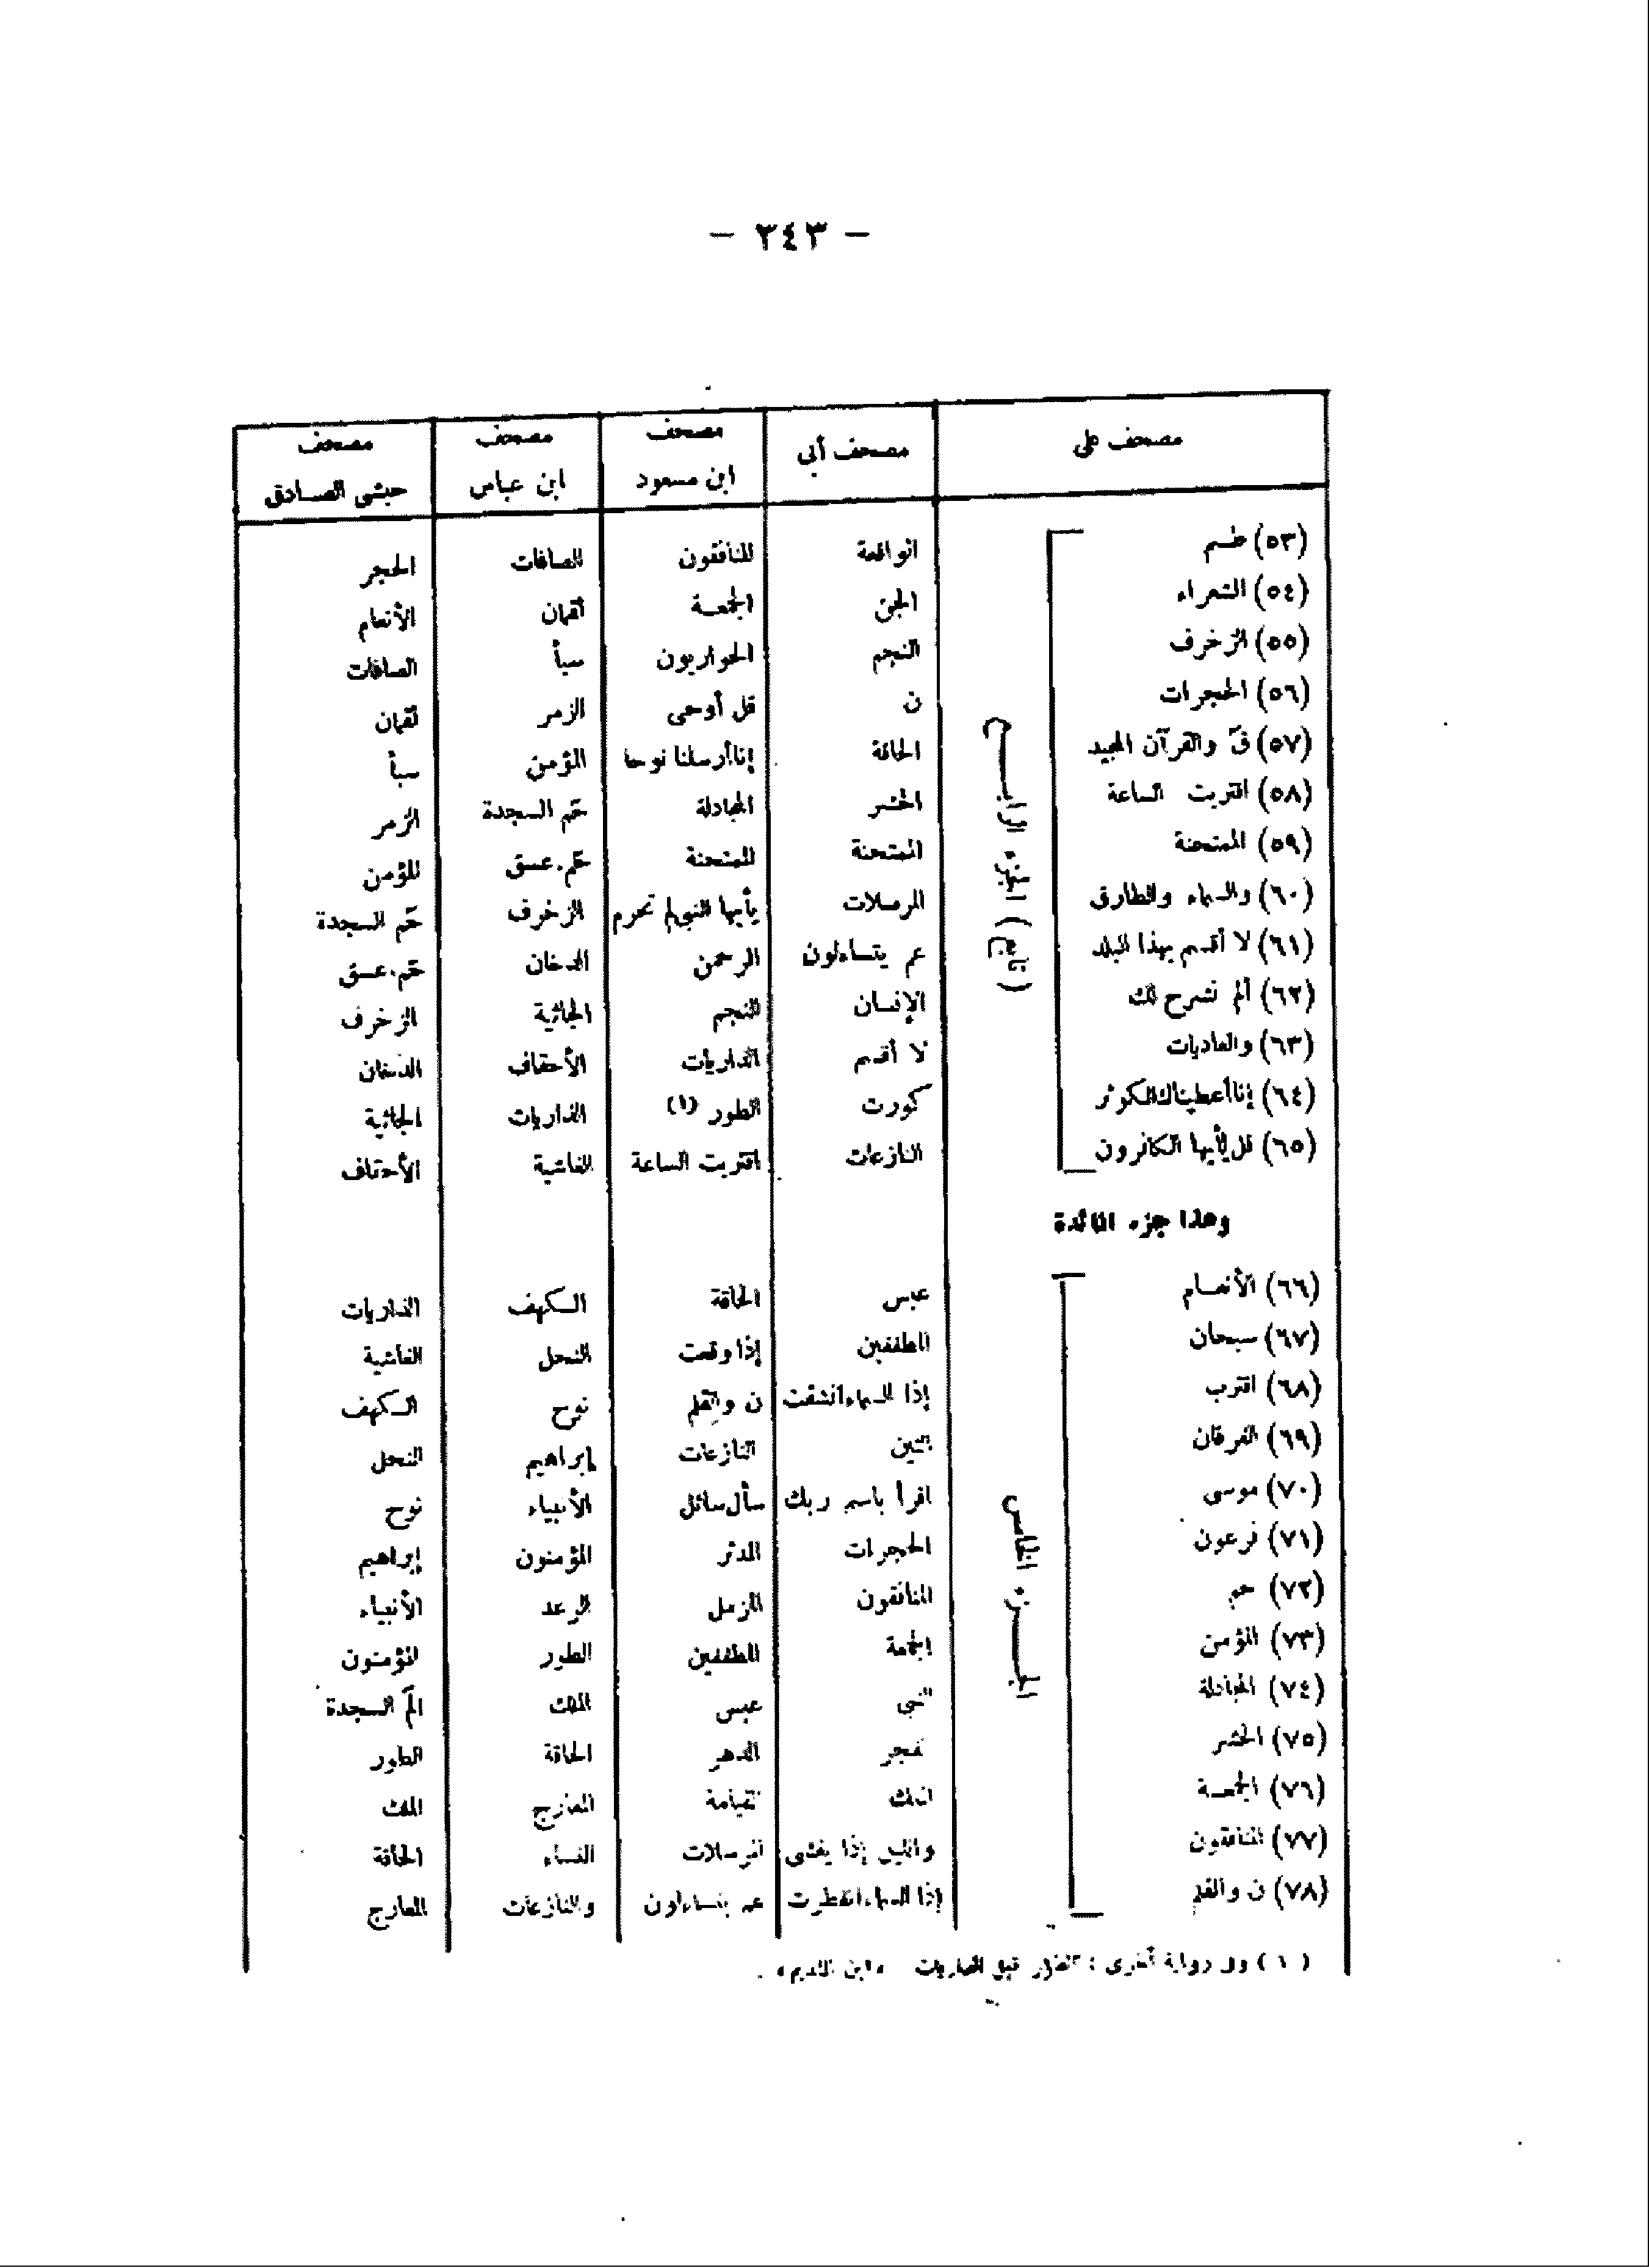 — ٣٤٣ —
مصحف على | مصحف أبى | مصحف ابن مسعود | مصحف ابن عباس | مصحف جعفر الصادق
(تابع) الجزء الرابع
(٥٣) طسم | الواقعة | المنافقون | الصافات | الحجر
(٥٤) الشعراء | الجن | الجمعة | لقمان | الأنعام
(٥٥) الزخرف | النجم | الحواريون | سبأ | الصافات
(٥٦) الحجرات | ن | قل أوحى | الزمر | لقمان
(٥٧) قۤ والقرآن المجيد | الحاقة | إنا أرسلنا نوحا | المؤمن | سبأ
(٥٨) اقتربت الساعة | الحشر | المجادلة | حۤم السجدة | الزمر
(٥٩) الممتحنة | الممتحنة | الممتحنة | حۤم.عسق | المؤمن
(٦٠) والسماء والطارق | المرسلات | يأيها النبى لم تحرم | الزخرف | حۤم السجدة
(٦١) لا أقسم بهذا البلد | عم يتساءلون | الرحمن | الدخان | حۤم.عسق
(٦٢) ألم نشرح لك | الإنسان | النجم | الجاثية | الزخرف
(٦٣) والعاديات | لا أقسم | الذاريات | الأحقاف | الدخان
(٦٤) إنا أعطيناك الكوثر | كورت | الطور (١) | الذاريات | الجاثية
(٦٥) قل يأيها الكافرون | النازعات | اقتربت الساعة | الغاشية | الأحقاف
وهذا جزء المائدة
الجـزء الخامس
(٦٦) الأنعام | عبس | الحاقة | الكهف | الذاريات
(٦٧) سبحان | المطففين | إذا وقعت | النحل | الغاشية
(٦٨) اقترب | إذا السماء انشقت | ن والقلم | نوح | الكهف
(٦٩) الفرقان | التين | النازعات | إبراهيم | النحل
(٧٠) موسى | اقرأ باسم ربك | سأل سائل | الأنبياء | نوح
(٧١) فرعون | الحجرات | المدثر | المؤمنون | إبراهيم
(٧٢) حم | المنافقون | المزمل | الرعد | الأنبياء
(٧٣) المؤمن | الجمعة | المطففين | الطور | المؤمنون
(٧٤) المجادلة | النبى | عبس | الملك | الۤم السجدة
(٧٥) الحشر | الفجر | الدهر | الحاقة | الطور
(٧٦) الجمعة | الملك | القيامة | المعارج | الملك
(٧٧) المنافقون | والليل إذا يغشى | المرسلات | النساء | الحاقة
(٧٨) ن والقلم | إذا السماء انفطرت | عم يتساءلون | والنازعات | المعارج
(١) وفى رواية أخرى : الطور قبل الذاريات «ابن النديم» .